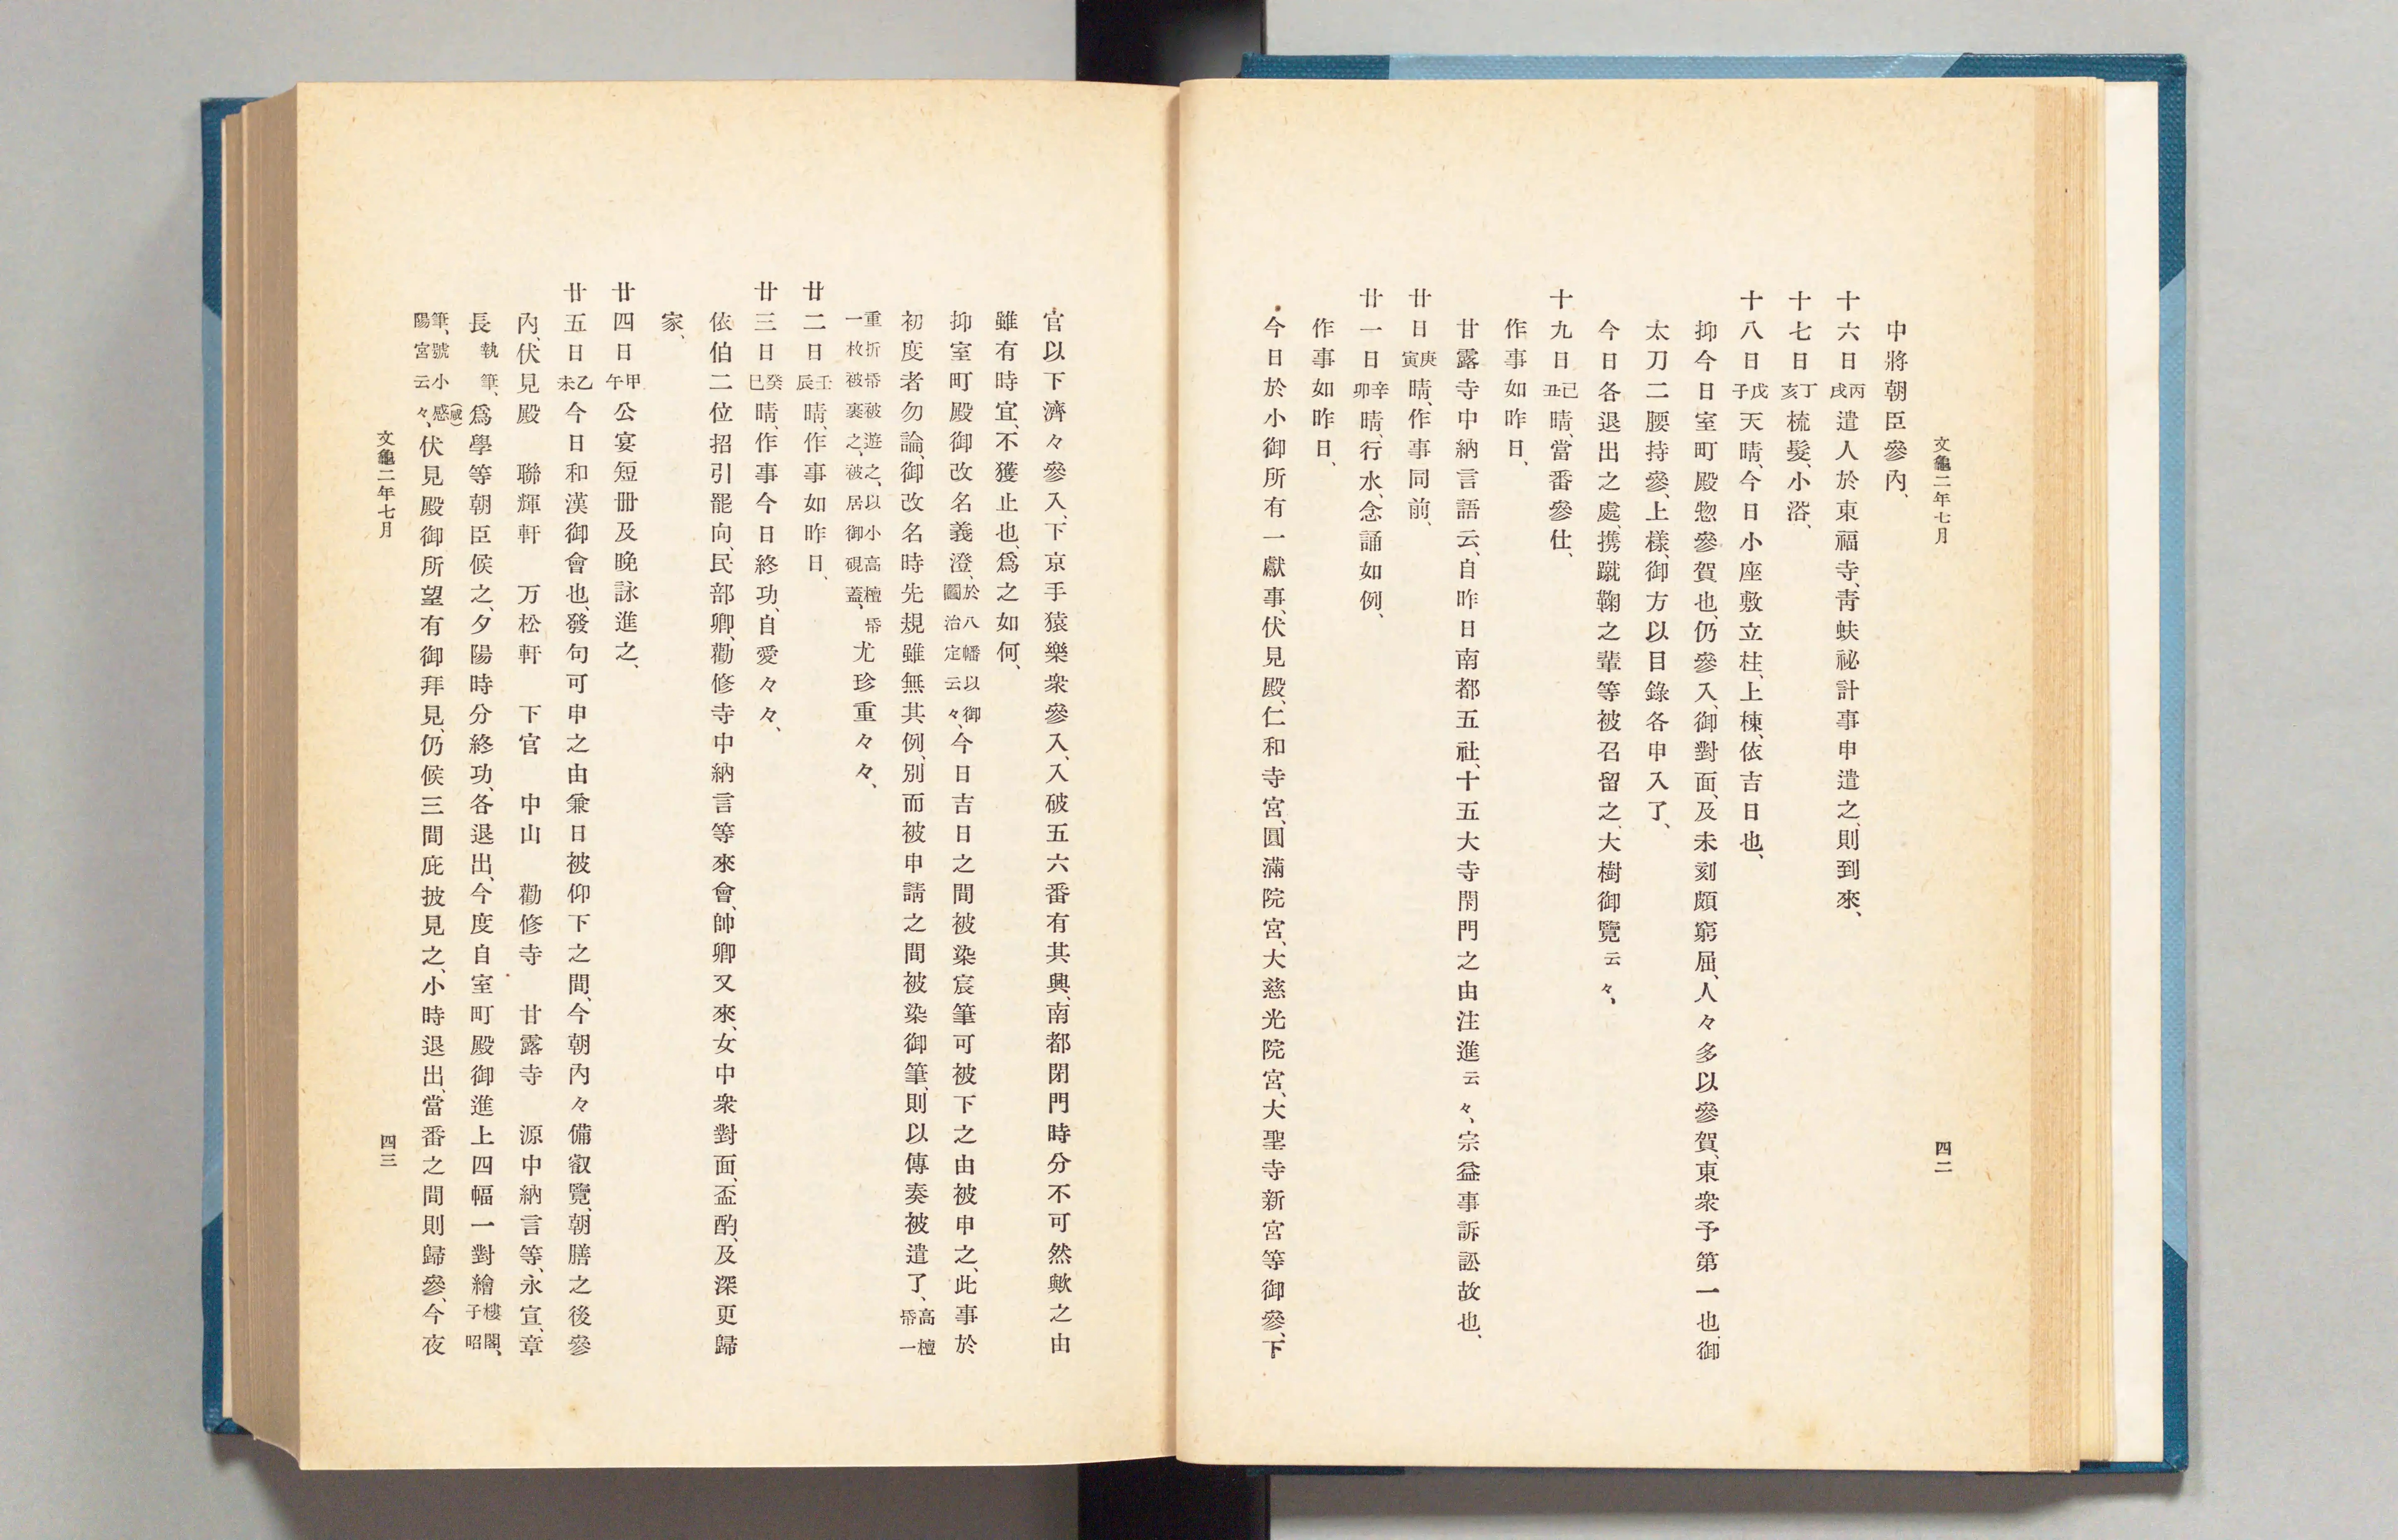 文龜二年七月
四二
中將朝臣參內、
十六日丙戌遣人於東福寺、靑蚨祕計事申遣之、則到來、
十七日丁亥梳髮、小浴、
十八日戊子天晴、今日小座敷立柱、上棟、依吉日也、
抑今日室町殿惣參賀也、仍參入、御對面、及未刻頗窮屈、人々多以參賀、東衆予第一也、御
太刀二腰持參、上樣、御方以目錄各申入了、
今日各退出之處、携蹴鞠之輩等被召留之、大樹御覽云々、
十九日己丑晴、當番參仕、
作事如昨日、
甘露寺中納言語云、自昨日南都五社、十五大寺閇門之由注進云々、宗益事訴訟故也、
廿日庚寅晴、作事同前、
廿一日辛卯晴、行水、念誦如例、
作事如昨日、
今日於小御所有一獻事、伏見殿、仁和寺宮、圓滿院宮、大慈光院宮、大聖寺新宮等御參、下
官以下濟々參入、下京手猿樂衆參入、入破五六番有其興、南都閉門時分不可然歟之由
雖有時宜、不獲止也、爲之如何、
抑室町殿御改名義澄、於八幡以御鬮治定云々、今日吉日之間被染宸筆可被下之由被申之、此事於
初度者勿論、御改名時先規雖無其例、別而被申請之間被染御筆、則以傳奏被遣了、高檀帋一
重折帋被遊之、以小高檀帋一枚被裏之、被居御硯蓋、尤珍重々々、
廿二日壬辰晴、作事如昨日、
廿三日癸巳晴、作事今日終功、自愛々々、
依伯二位招引罷向、民部卿、勸修寺中納言等來會、帥卿又來、女中衆對面、盃酌、及深更歸
家、
廿四日甲午公宴短册及晩詠進之、
廿五日乙未今日和漢御會也、發句可申之由兼日被仰下之間、今朝內々備叡覽、朝膳之後參
內、伏見殿　聯輝軒　万松軒　下官　中山　勸修寺　甘露寺　源中納言等、永宣、章
長執筆、爲學等朝臣候之、夕陽時分終功、各退出、今度自室町殿御進上四幅一對繪樓閣、子昭
筆、號小感(咸)陽宮云々、伏見殿御所望有御拜見、仍候三間庇披見之、小時退出、當番之間則歸參、今夜
文龜二年七月
四三